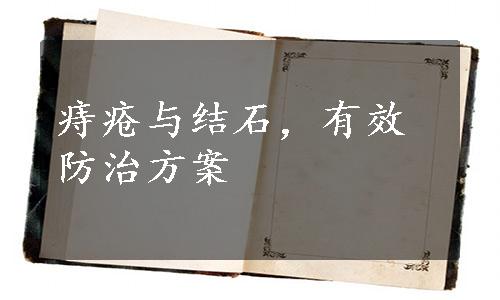 痔疮与结石，有效
防治方案